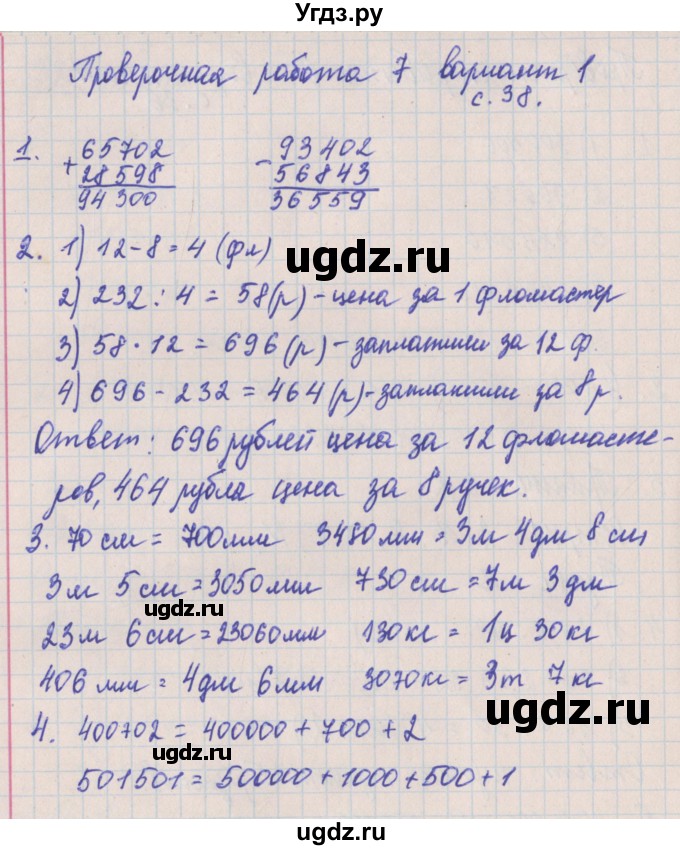 Угдз.ру
Проверочная работа 7 вариант 1
с. 38.
1. + 65702 - 93402
28598 56843
94300 36559
ugdz.ru
2. 1) 12-8=4 (фл)
2) 232 : 4 = 58(р) - цена за 1 фломастер
3) 58 · 12 = 696 (р) - заплатили за 12 ф.
4) 696 - 232 = 464 (р) - заплатили за 8 р.
Ответ: 696 рублей цена за 12 фломасте-
ров, 464 рубла цена за 8 ручек.
ugdz.ru
3. 70 см = 700 мм 3480 мм = 3 м 4 дм 8 см
3 м 5 см = 3050 мм 730 см = 7 м 3 дм
ugdz.ru
23 м 6 см = 23060 мм 130 кг = 1 ц 30 кг
406 мм = 4 дм 6 мм 3070 кг = 3 т 7 кг
ugdz.ru
4. 400702 = 400000 + 700 + 2
ugdz.ru
501501 = 500000 + 1000 + 500 + 1
ugdz.ru